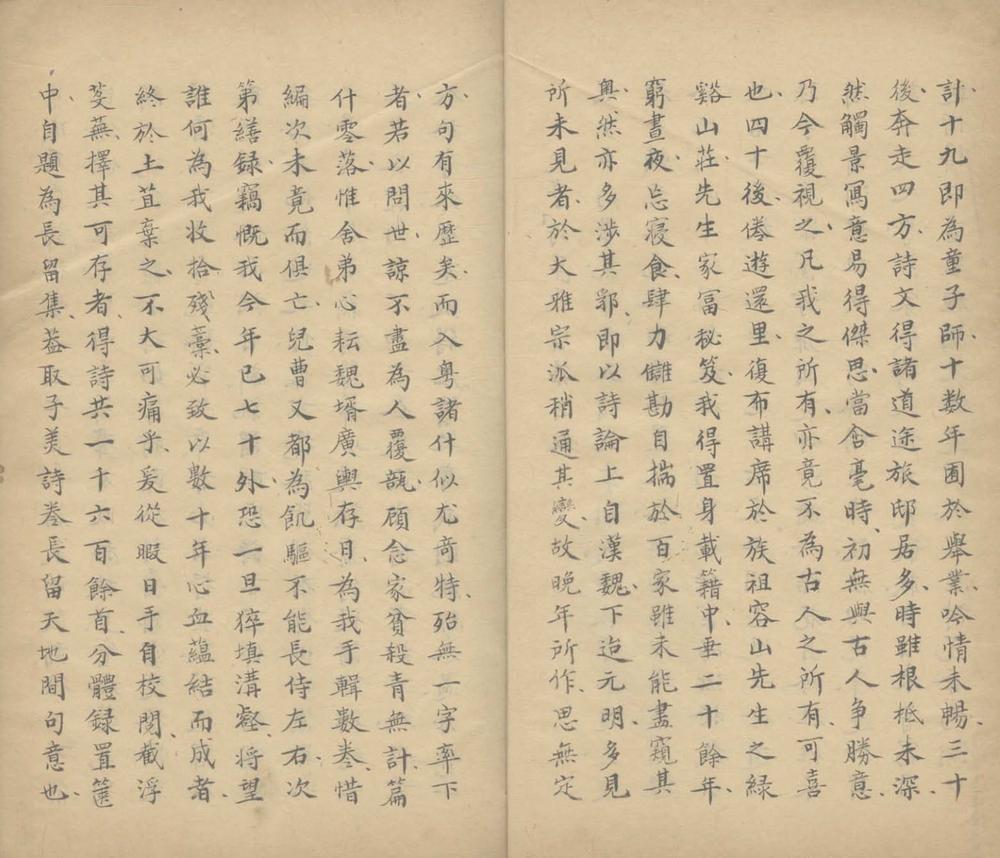 計十九即為童子師十數年囿於舉業吟情未暢三十
後奔走四方詩文得諸道途旅邸居多時雖根柢未深
然觸景寫意易得傑思當含毫時初無與古人争勝意
乃今覆視之凡我之所有亦竟不為古人之所有可喜
也四十後倦遊還里復布講席於族祖容山先生之緑
谿山莊先生家富秘笈我得置身載籍中垂二十餘年
窮晝夜忘寢食肆力讎勘自揣於百家雖未能盡窺其
奥然亦多涉其郛即以詩論上自漢魏下迨元明多見
所未見者於大雅宗派稍通其變故晚年所作思無定
方句有來歷矣而入粤諸什似尤奇特殆無一字率下
者若以問世諒不盡為人覆瓿顧念家貧殺青無計篇
什零落惟舍弟心耘魏壻廣輿存日為我手輯數卷惜
編次未竟而俱亡兒曹又都為飢驅不能長侍左右次
第繕録竊慨我今年已七十外恐一旦猝填溝壑将望
誰何為我收拾殘藁必致以數十年心血蘊結而成者
終於土苴棄之不大可痛乎爰從暇日手自校閲截浮
芟蕪擇其可存者得詩共一千六百餘首分體録置篋
中自題為長留集葢取子美詩卷長留天地間句意也